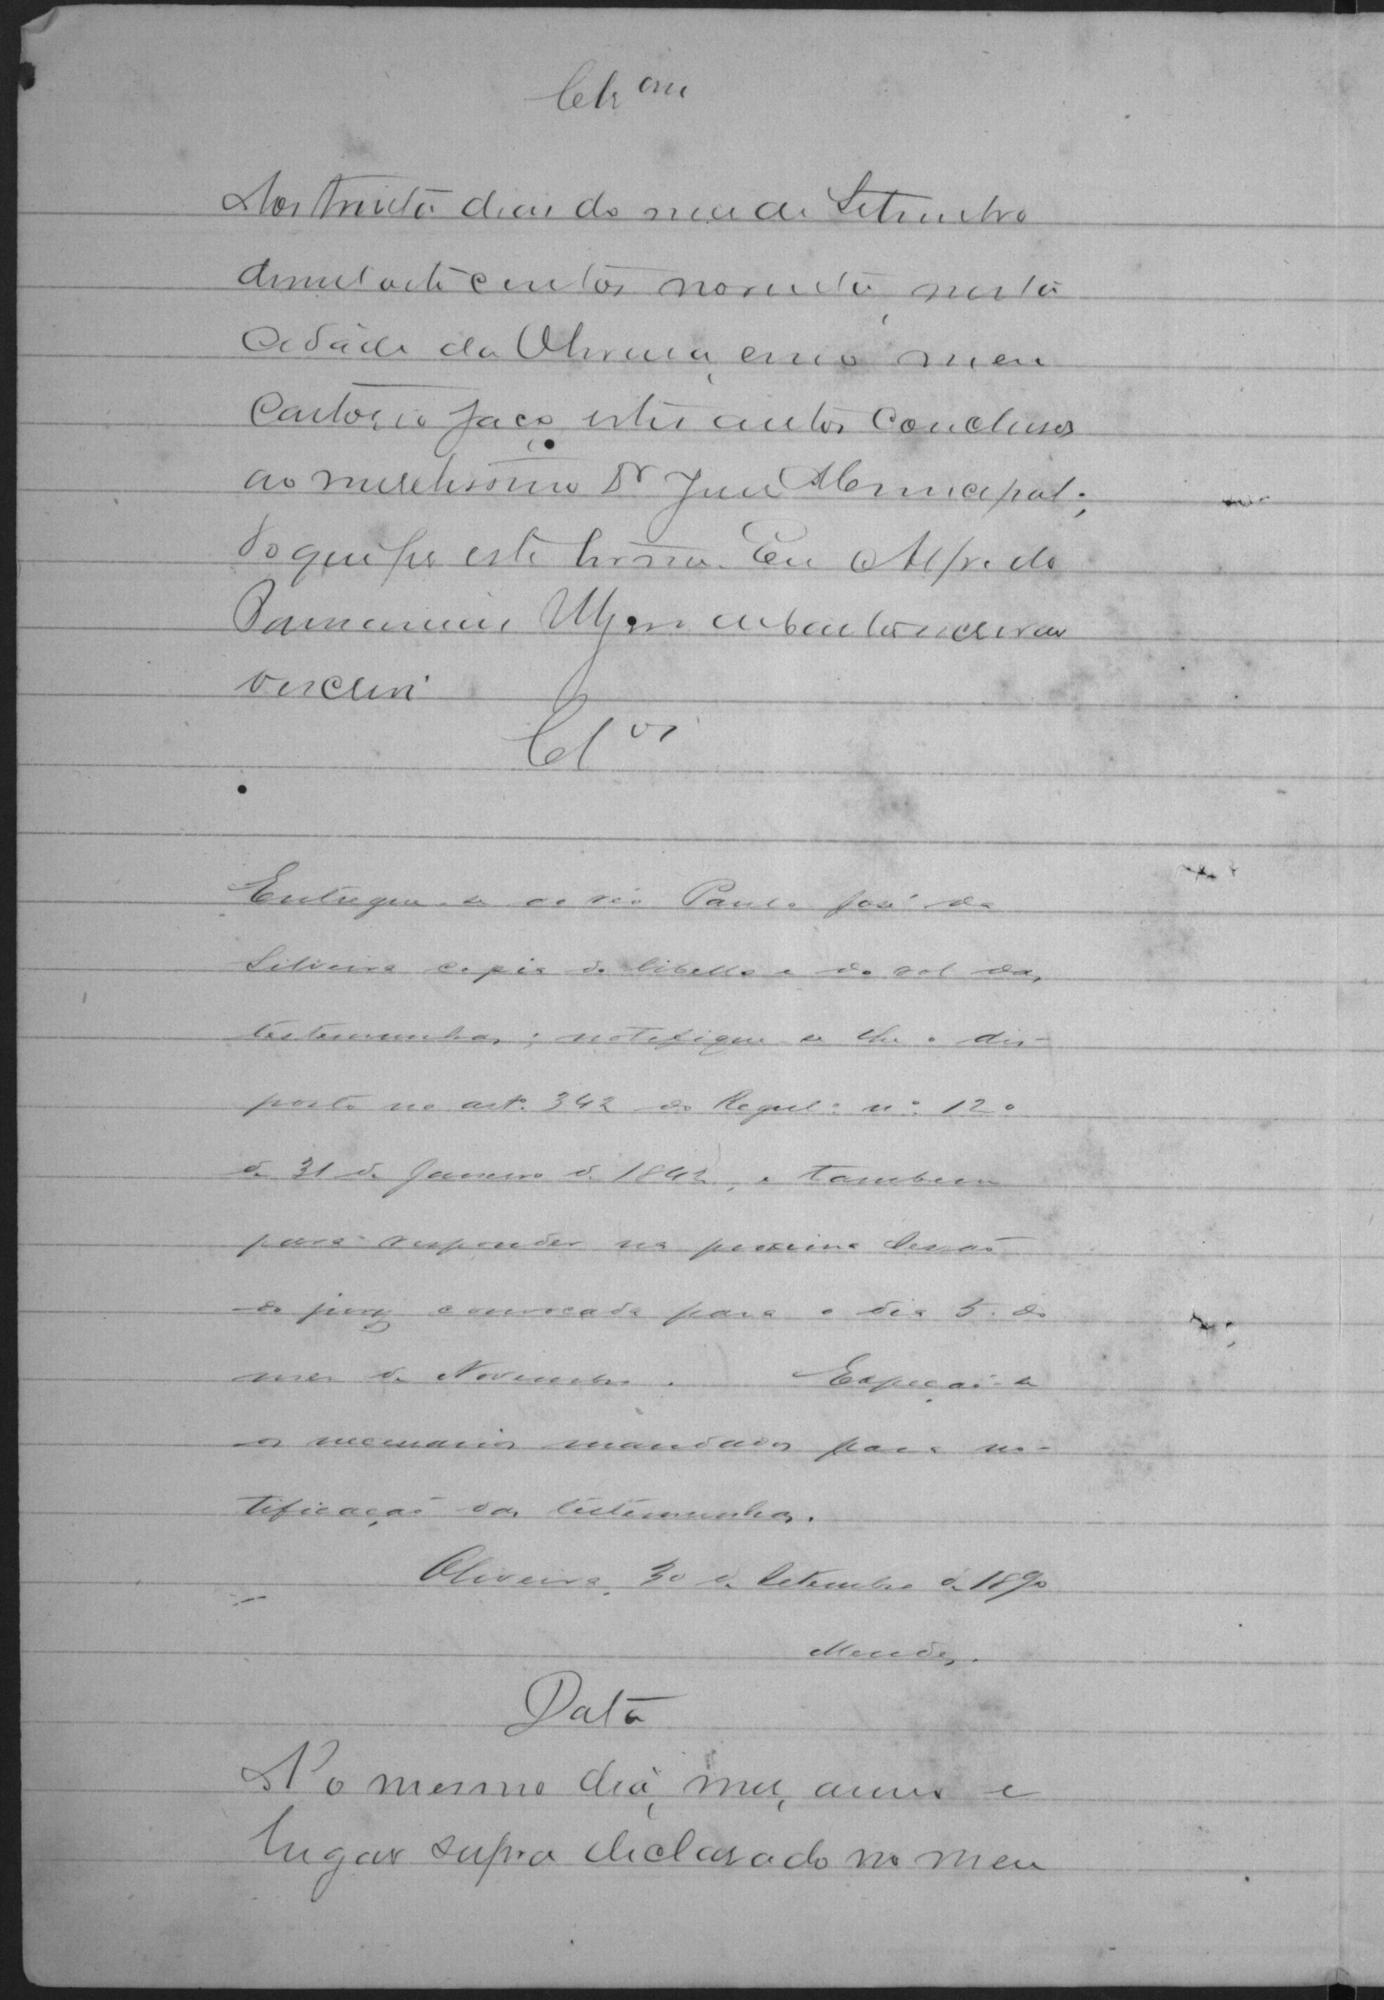 Cls.am
Aos trinta dias do mes de Setembro
de mil oito centos noventa, nesta
Cidade da Oliveira, em o meu
Cartorio faço estes autos conclusos
ao meretissimo Dr Juiz Municipal;
do que fiz este termo. Eu Alfredo
escrevi
Clos
Entregue-se ao réo Paulo José da
Silveira copia do libello e do rol das
testemunhas; notifique-se-lhe o dis-
posto no arto. 342 do Regulo. no. 120
de 31 de Janeiro de 1842, e tambem
para responder na proxima sessão
do jury convocada para o dia 5 do
mes de Novembro. Expeção-se
os necessarios mandados para no-
tificação das testemunhas.
Oliveira, 30 de Setembro de 1890
Mendes.
Data
No mesmo dia, mes, anno e
lugar supra declarado no meu